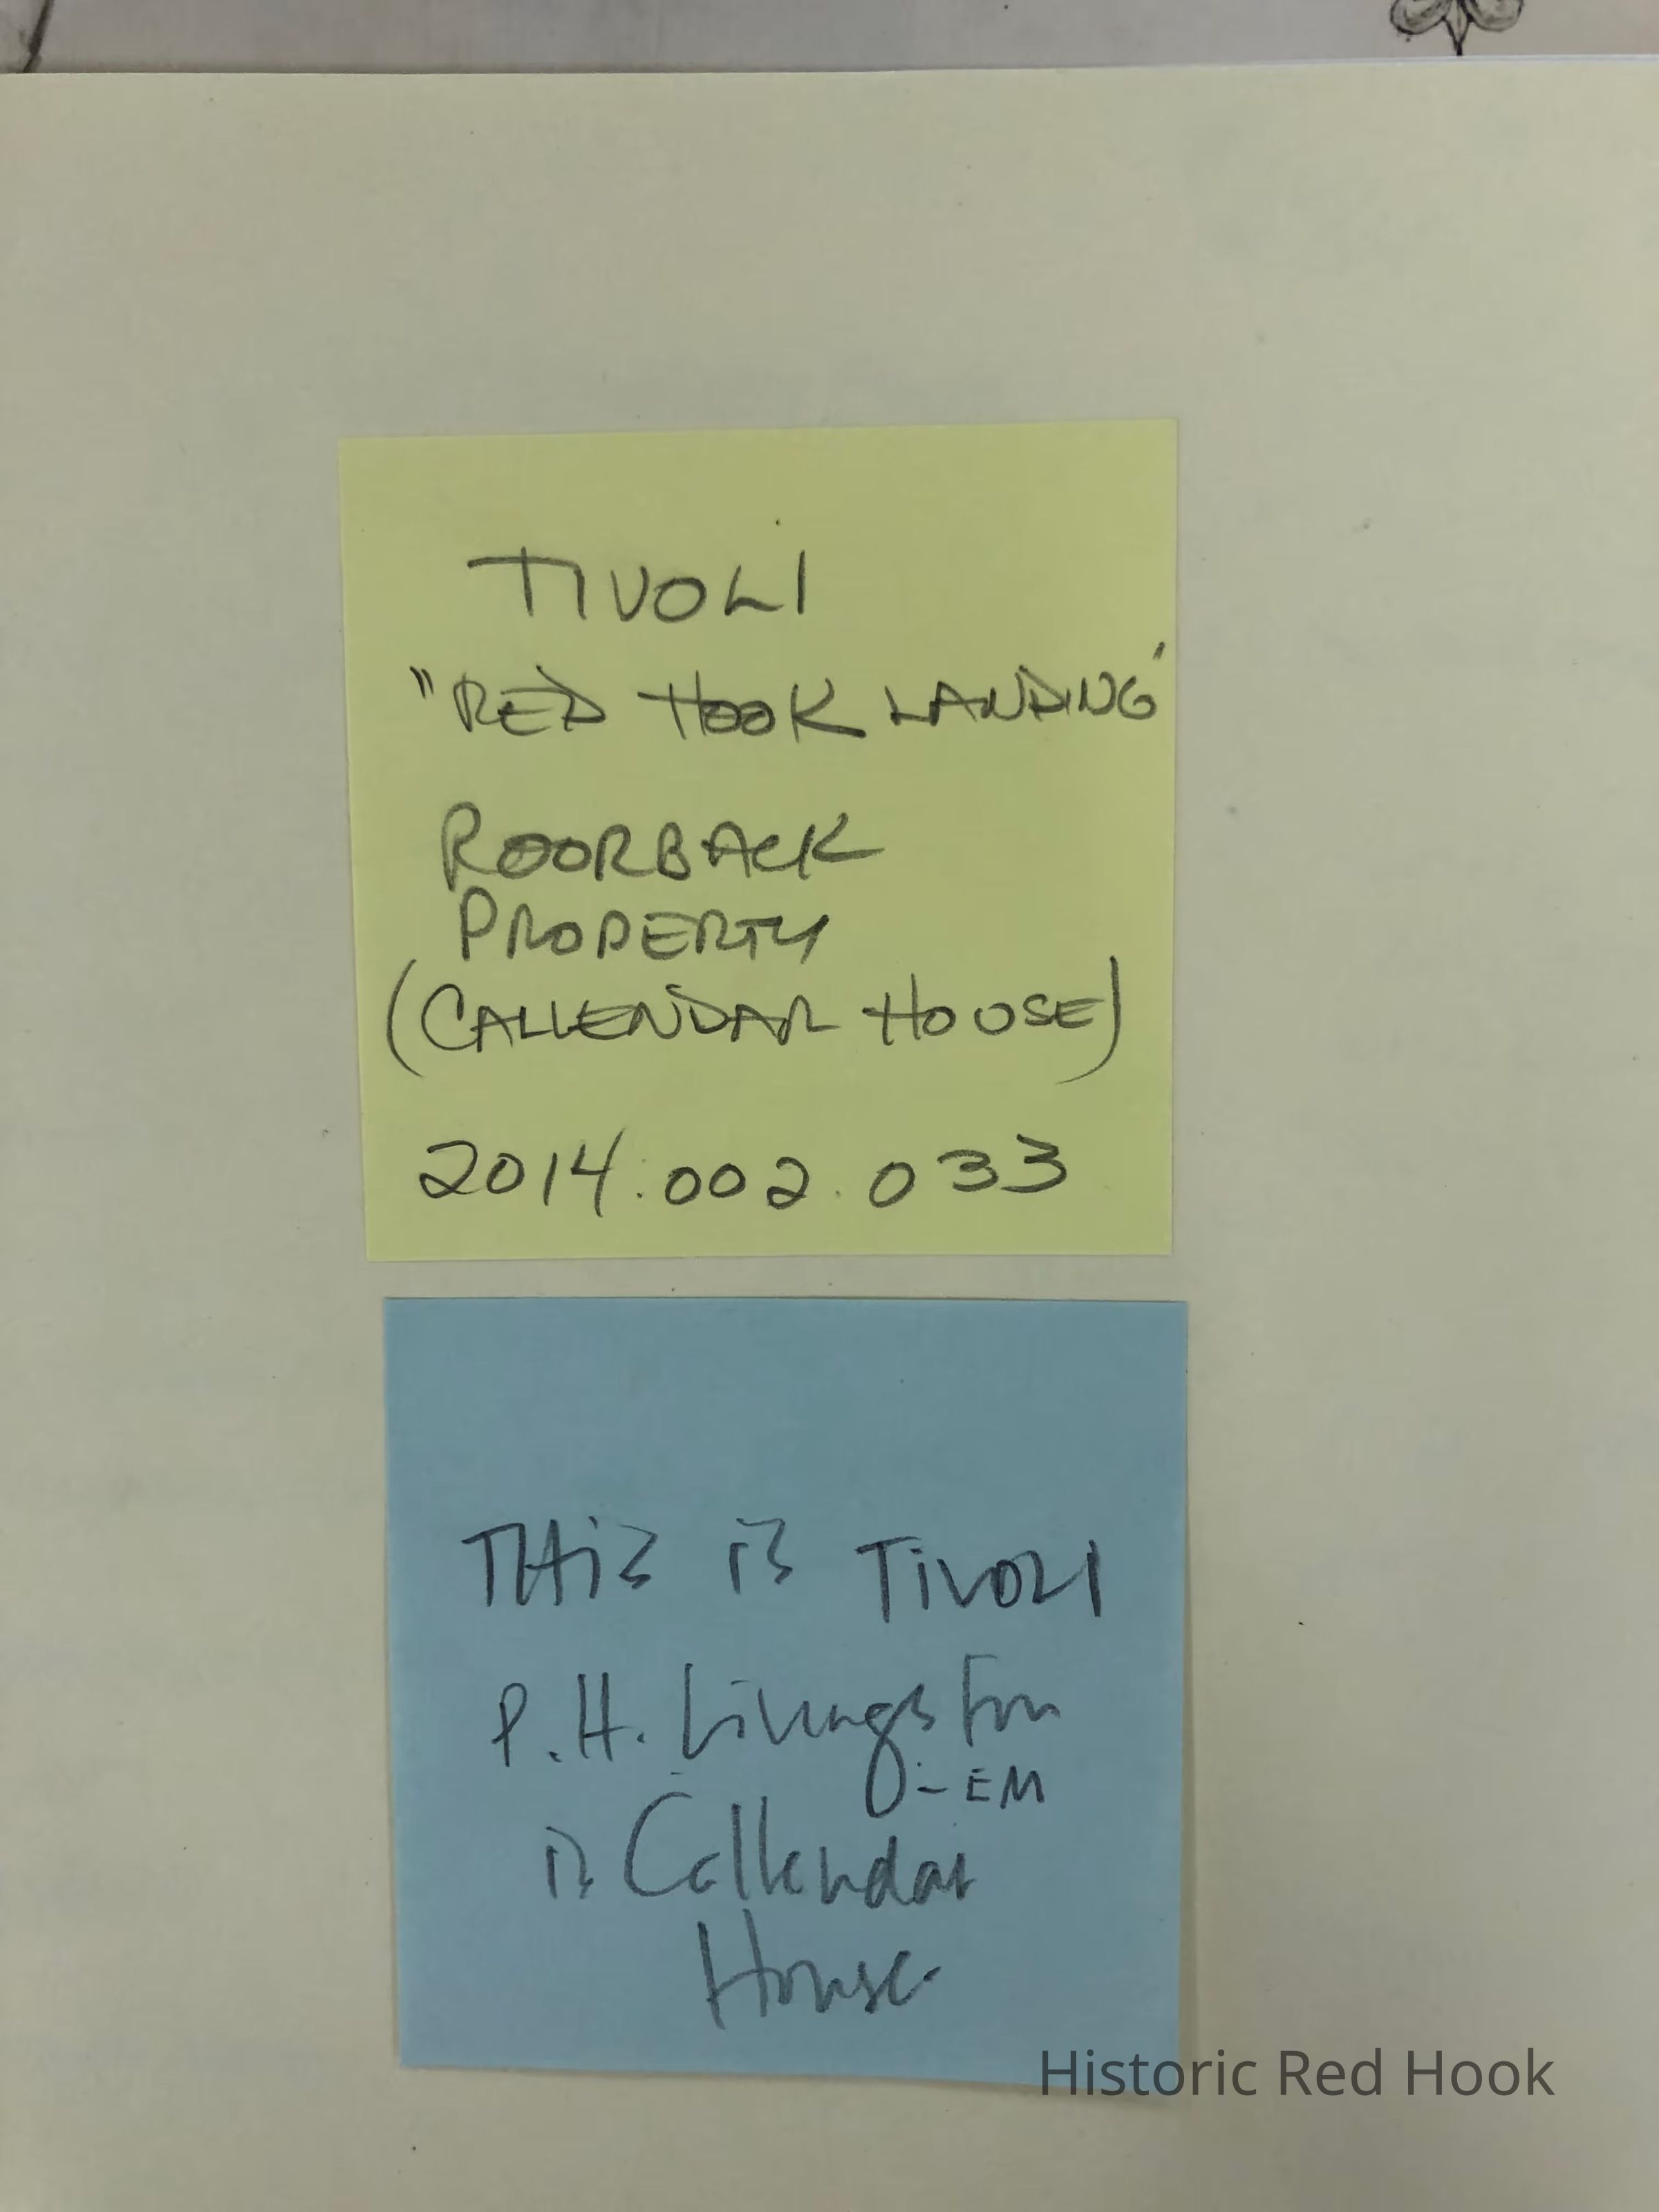 TIVOLI
"RED HOOK LANDING'
ROORBACK
PROPERTY
(CALLENDAR HOUSE)
2014.002.033
THiS iS TiVOLI
P.H. Livingston
- EM
is Callendar
House
Historic Red Hook